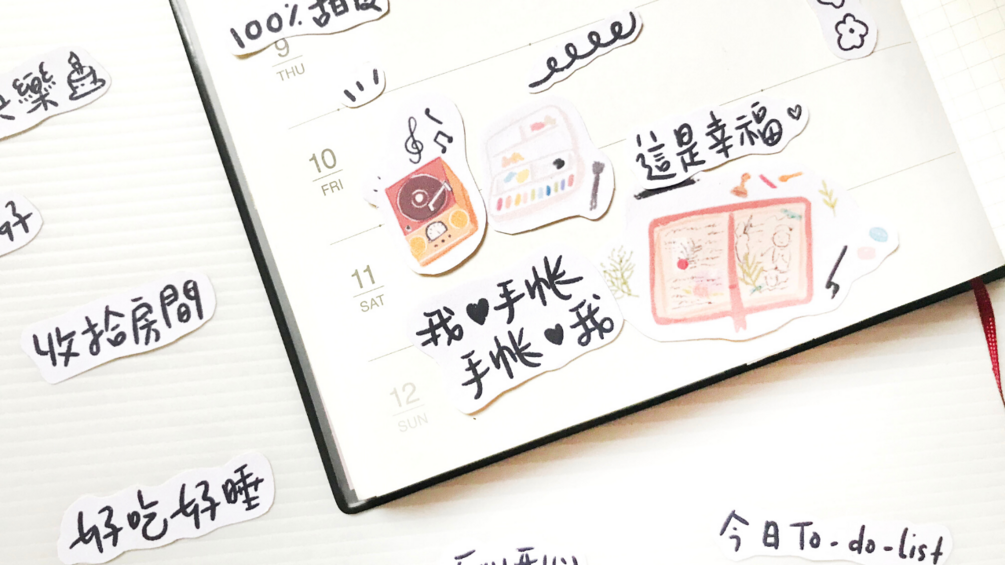 100%甜度
9
THU
樂
10
FRI
這是幸福
好
11
SAT
我♥手帐
手帐♥我
收拾房間
12
SUN
好吃好睡
今日To-do-list